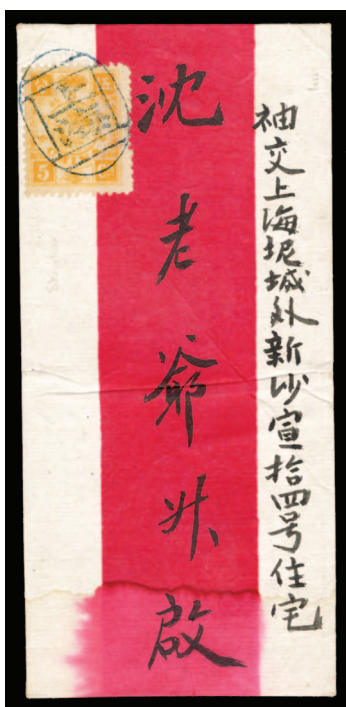 袖交上海坭城外新沙宣拾四号住宅
沈老爺升啟
5